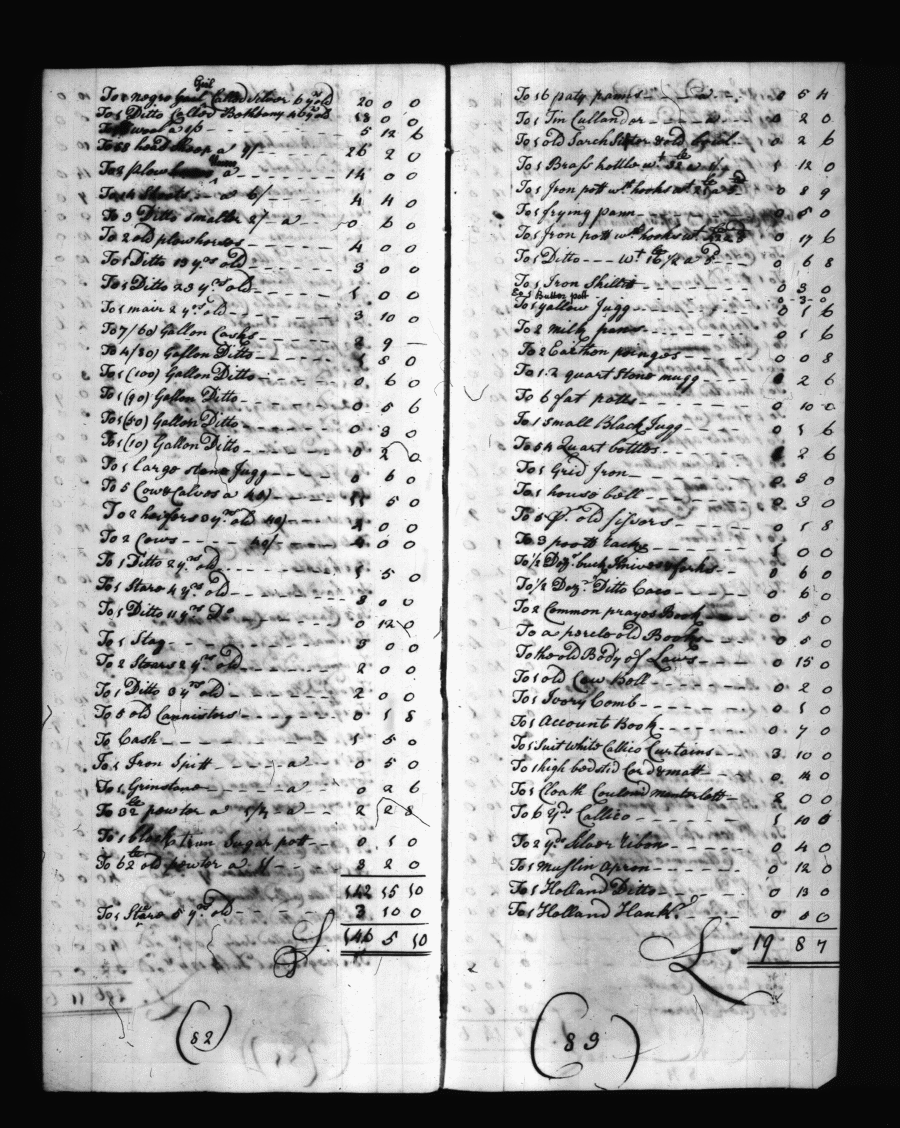 Girl
To 1 negro Called Silver 6 yrs old 20 0 0
To 1 Ditto Called yrs old 18 0 0
To wool a 5 12 6
To head Sheep a 9/ 26 2 0
To 1 plow a 14 0 0
To 14 Shoats a 6/ 4 4 0
To 3 Ditto smaller 2/ a 0 6 0
To 2 old plow horses 4 0 0
To 1 Ditto 13 yrs old 3 0 0
To 1 Ditto 23 yrs old 1 0 0
To 1 mair 2 yrs old 3 10 0
To 7/60) Gallon Casks 2 9 —
To 4/30) Gallon Ditto 1 8 0
To 1 (100) Gallon Ditto 0 6 0
To 1 (90) Gallon Ditto 0 5 6
To 1 (50) Gallon Ditto 0 3 0
To 1 (10) Gallon Ditto 0 2 0
To 1 large stone Jugg 0 6 0
To 5 Cow & Calves a 45/ 11 5 0
To 2 heifers 3 yrs old 40/ 4 0 0
To 2 Cows 40/ 4 0 0
To 1 Ditto 2 yrs old 1 5 0
To 1 Stare 4 yrs old 3 0 0
To 1 Ditto 11 yrs Do 0 12 0
To 1 Stag 3 0 0
To 2 Stears 2 yrs old 2 0 0
To 1 Ditto 3 yrs old 2 0 0
To 5 old Cannisters 0 1 8
To Cash 1 5 0
To 1 Iron Spitt a 0 5 0
To 1 Grinstone 0 2 6
To 32 lb pewter a 1/4 a 2 2 8
To 1 block trun Sugar pott 0 1 0
To 62 lb old pewter a 1/ 3 2 0
142 15 10
To 1 Stare 5 yrs old 3 10 0
146 5 10
(82)
To 16 paty panns a 0 5 4
To 1 Tin Cullander 0 2 0
To 1 old Sarch Sifter & old bowl 0 2 6
To 1 Brass kettle wt 32 lb 1 12 0
To 1 Iron pott wth hooks wt 0 8 9
To 1 frying pann 0 5 0
To 1 Iron pott wth hooks wt 0 17 6
To 1 Ditto wt 16 1/2 a 5d 0 6 8
To 1 Iron Skillet 0 3 0
To 1 Butter pott 0 3 0
To 1 yallow Jugg 0 1 6
To 2 milk pans 0 1 6
To 2 Earthen poinges 0 0 8
To 1 2 quart Stone mugg 2 6
To 6 fat potts 0 10 0
To 1 Small Black Jugg 0 1 6
To 14 Quart bottles 2 6
To 1 Grid Iron 0 3 0
To 1 house bell 0 3 0
To 5 pr old sissers 0 1 8
To 3 1 0 0
To 1/2 Dozn buck Knives & forks 0 6 0
To 1/2 Dozn Ditto Caco 0 6 0
To 2 Common prayer Book 0 5 0
To a parcle old Books 0 5 0
To the old Body of Laws 0 15 0
To 1 old Cow Bell 0 2 0
To 1 Ivory Comb 0 1 0
To 1 Account Book 0 7 0
To 1 Suit White Callico Curtains 3 10 0
To 1 high bedstid Cord & matt 0
To 1 Cloak Coulourd 2 0 0
To 6 yds Callico 1 10 0
To 2 yds Ribon 0 4 0
To 1 Muslin Apron 0 12 0
To 1 Holland Ditto 0 13 0
To 1 Holland Hankf 0 0
L 19 8 7
(83)